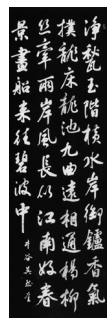 淨甃玉階橫水岸御鑪香氣
撲龍床龍池九曲遠相通楊柳
絲牽兩岸風長似江南好春
景畫船來往碧波中